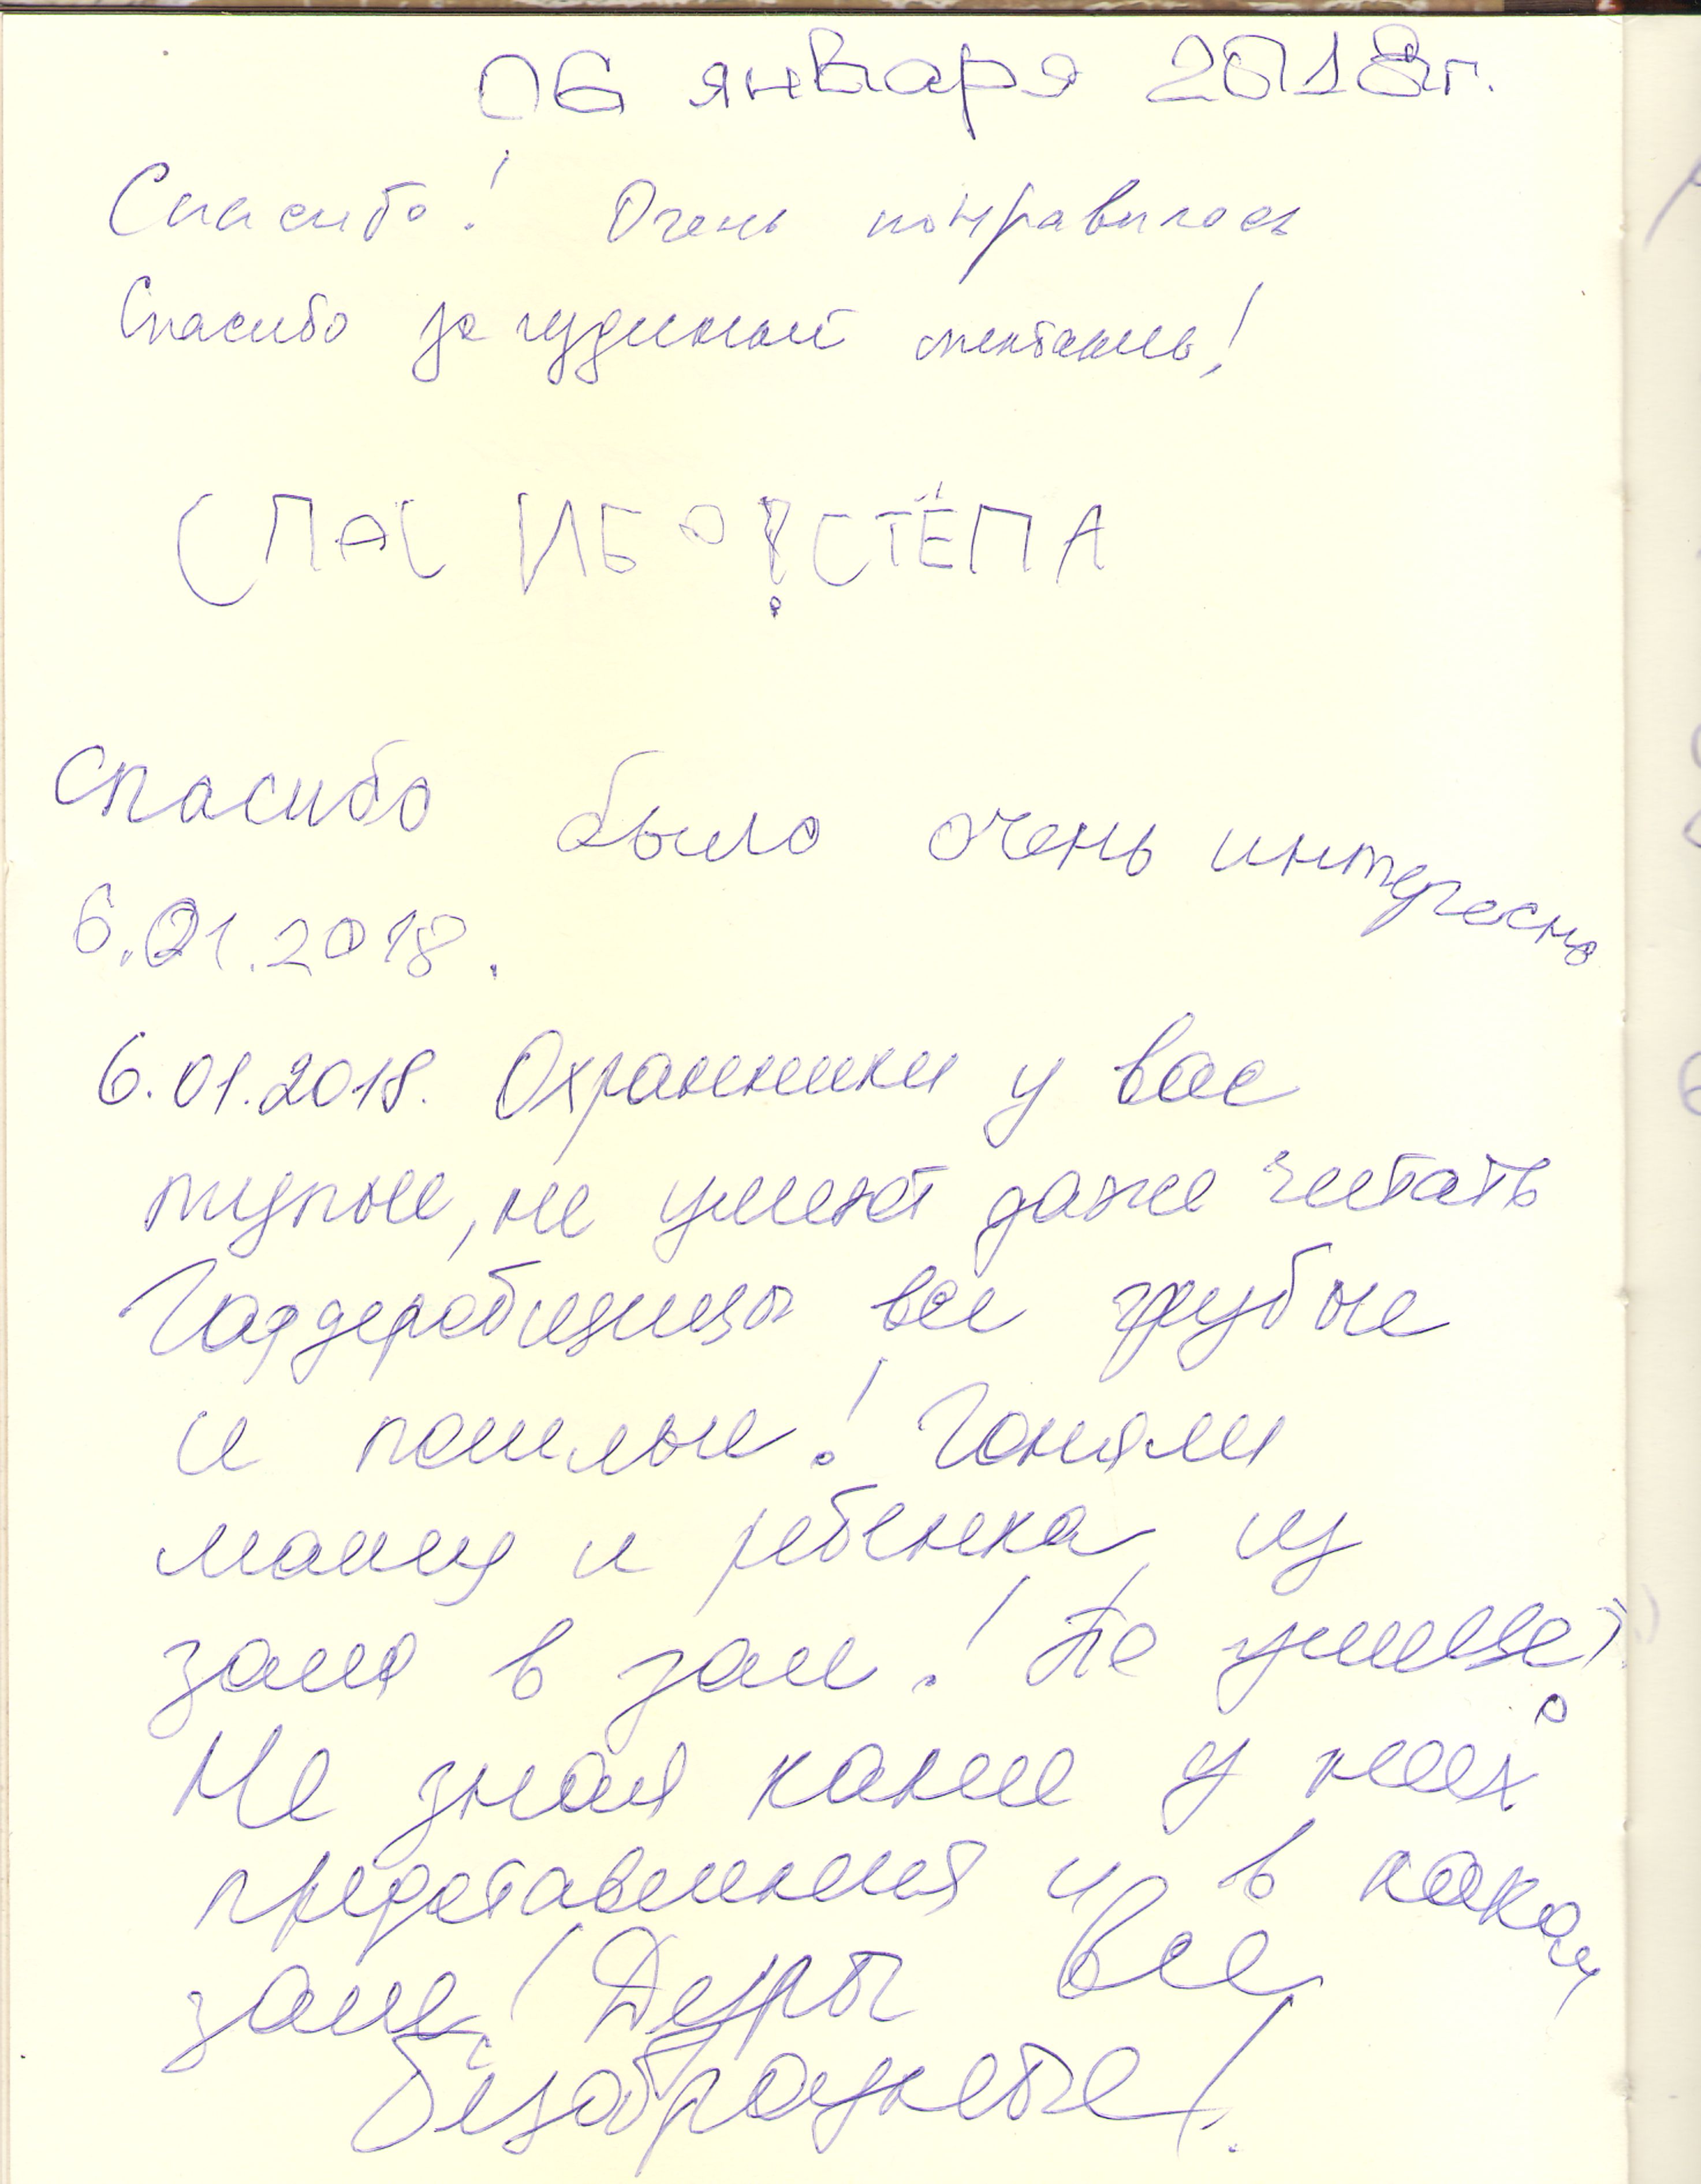 06 января 2018г.
Спасибо! Очень понравилось
Спасибо за чудесный спектакль!
СПАСИБО! СТЁПА
Спасибо было очень интересно
6.01.2018.
6.01.2018. Охранники у вас
тупые, не умеют даже читать
Гардеробщицы все грубые
и пошлые! Гоняли
маму и ребенка, из
зала в зал!
Не зная какие у них
представления и в каком
зале! Дуры все
безобразные!